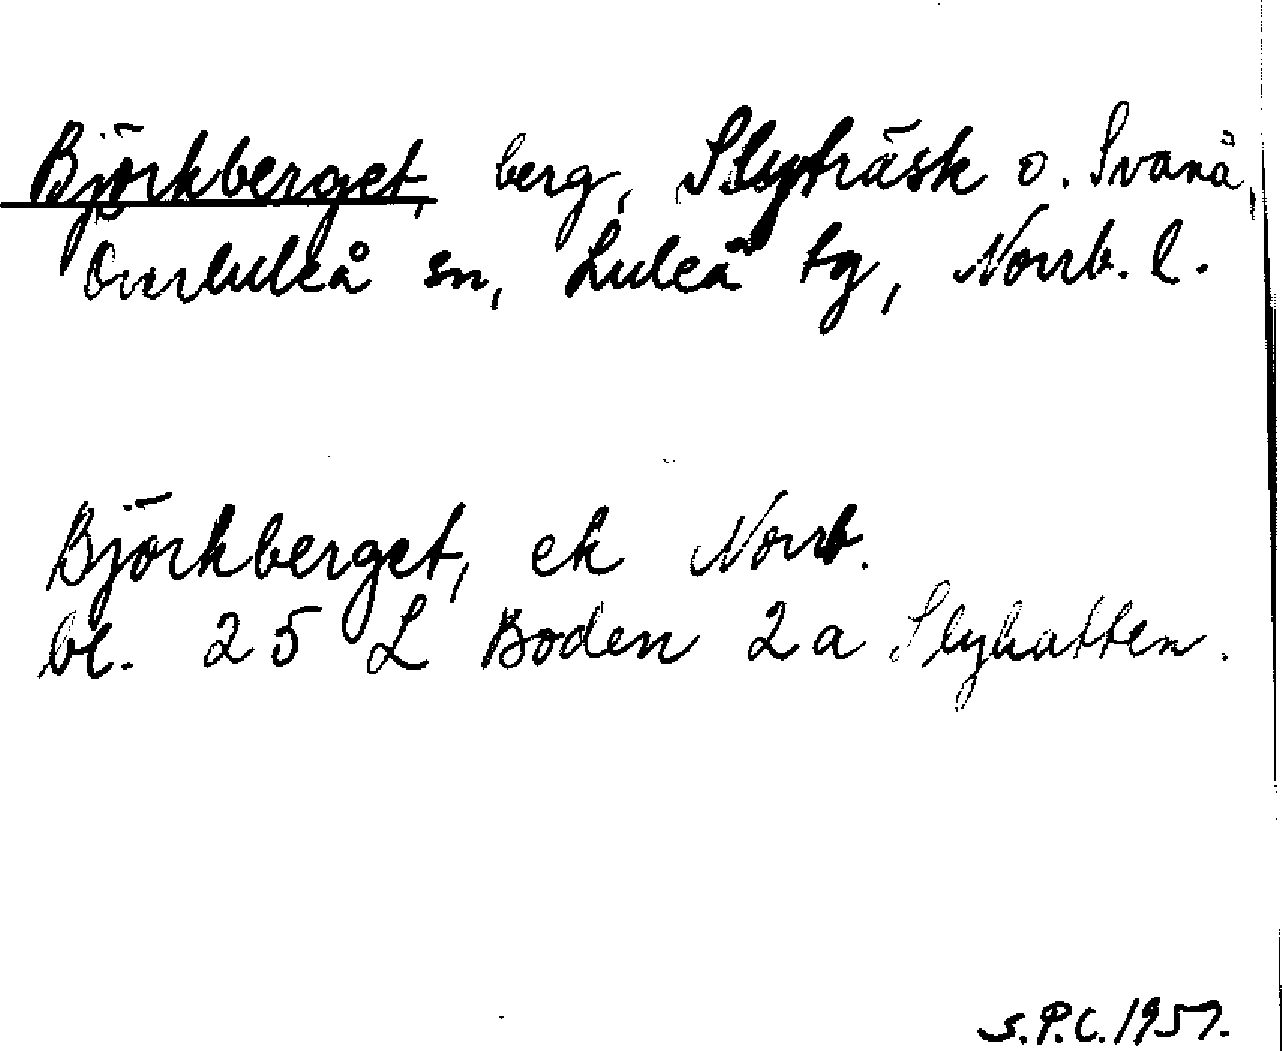 Björkberget, berg, Slyträsk o. Svanå,
Överluleå sn, Luleå tg, Norrb. l.
Björkberget, ek Norrb.
bl. 25 L Boden 2a Slyhatten.
S.P.C. 1957.